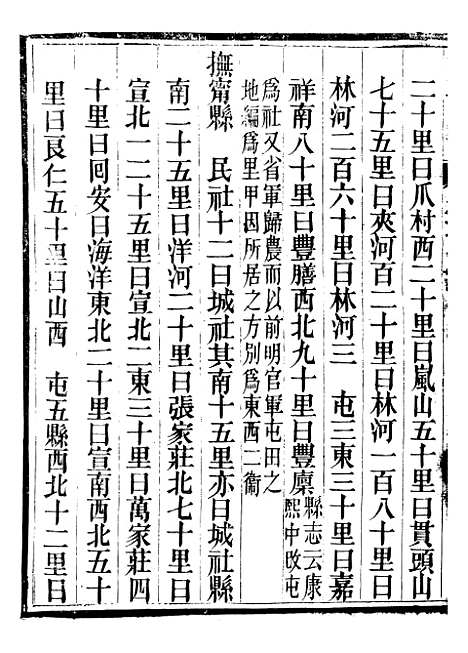 二十里曰爪村西二十里曰嵐山五十里曰貫頭山
七十五里曰夾河百二十里曰林河一百八十里曰
林河二百六十里曰林河三　屯三東三十里曰嘉
祥南八十里曰豐膳西北九十里曰豐廪縣志云康熙中改屯
爲社又省軍歸農而以前明官軍屯田之
地編爲里甲因所居之方別爲東西二衞
撫甯縣　民社十二曰城社其南十五里亦曰城社縣
南二十五里曰洋河二十里曰張家莊北七十里曰
宣北一二十五里曰宣北二東三十里曰萬家莊四
十里曰回安曰海洋東北二十里曰宣南西北五十
里曰良仁五十里曰山西　屯五縣西北十二里曰